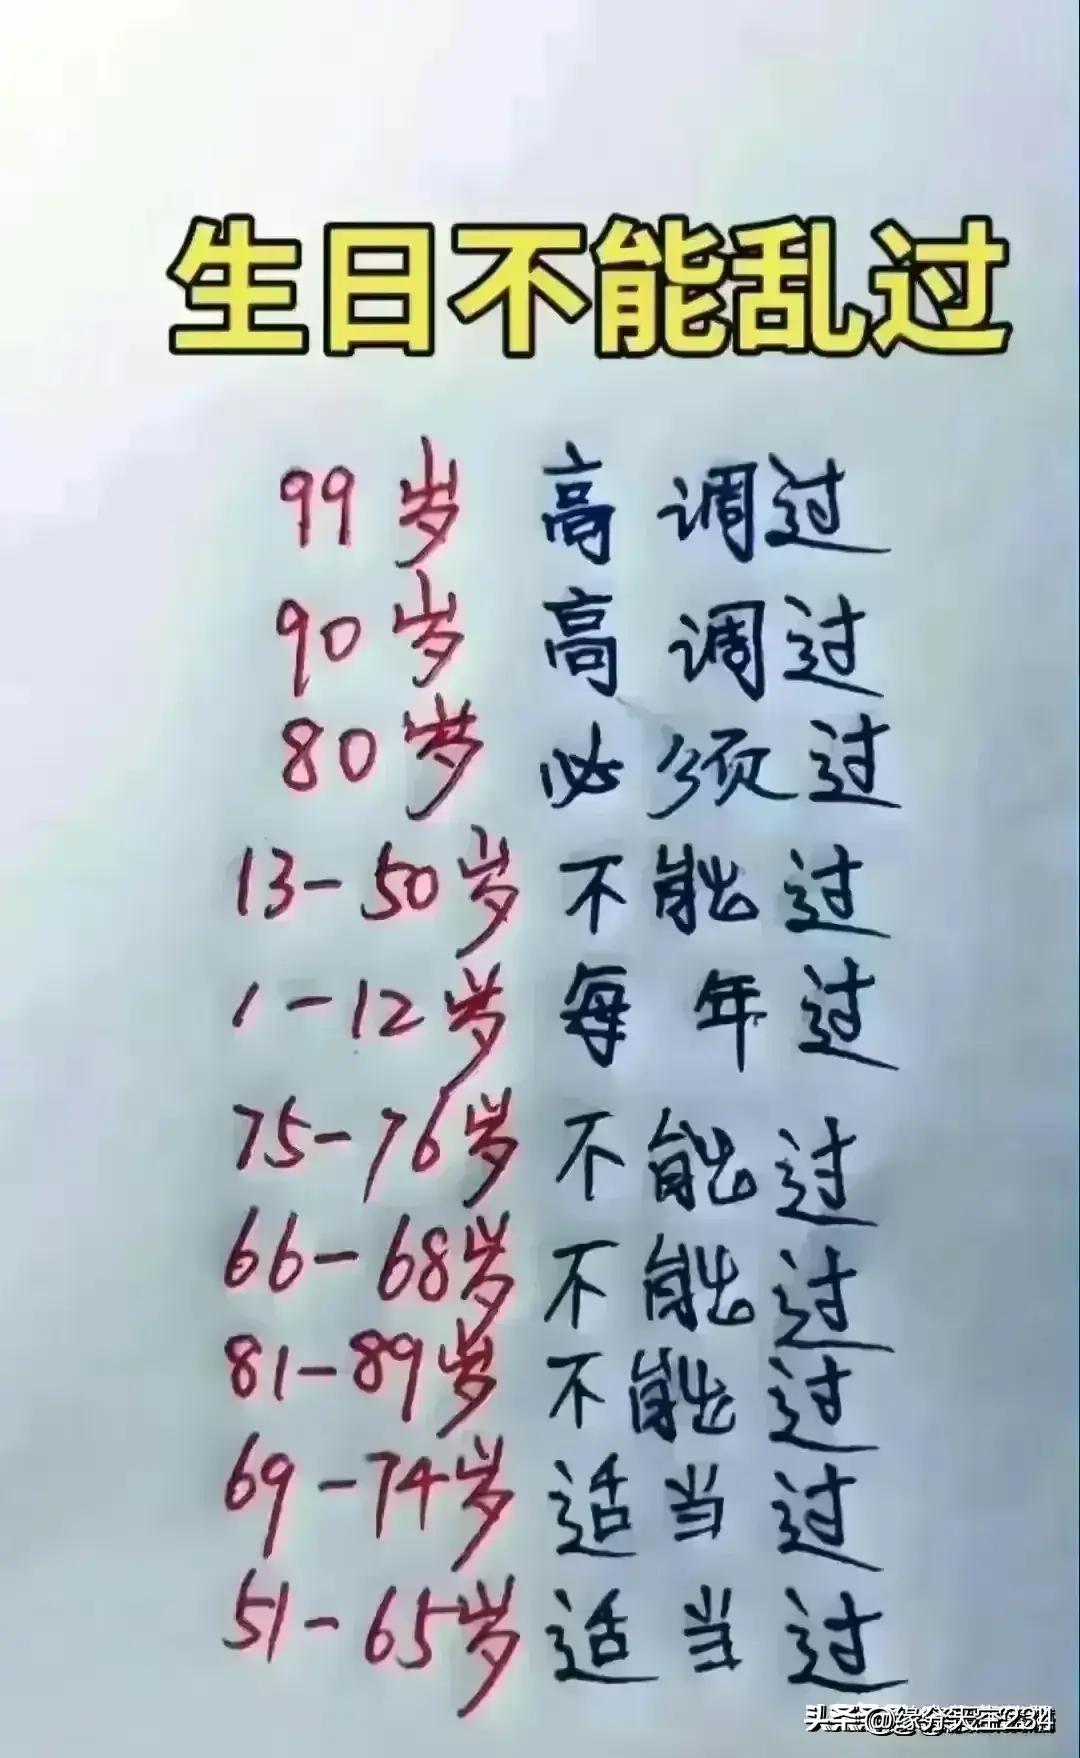 生日不能乱过
99岁 高调过
90岁 高调过
80岁 必须过
13-50岁 不能过
1-12岁 每年过
75-76岁 不能过
66-68岁 不能过
81-89岁 不能过
69-74岁 适当过
51-65岁 适当过
头条 @缘分天空234